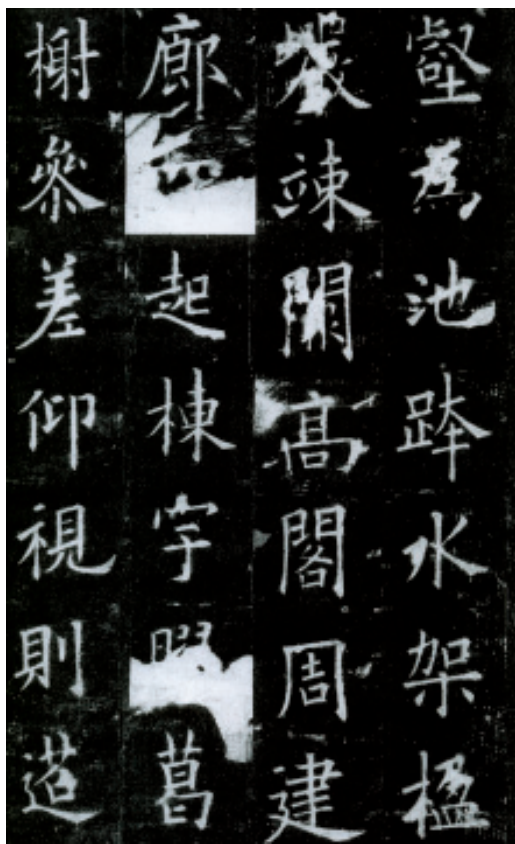 壑為池跨水架楹
巖竦闕高閣周建
廊起棟宇葛
榭參差仰視則迢